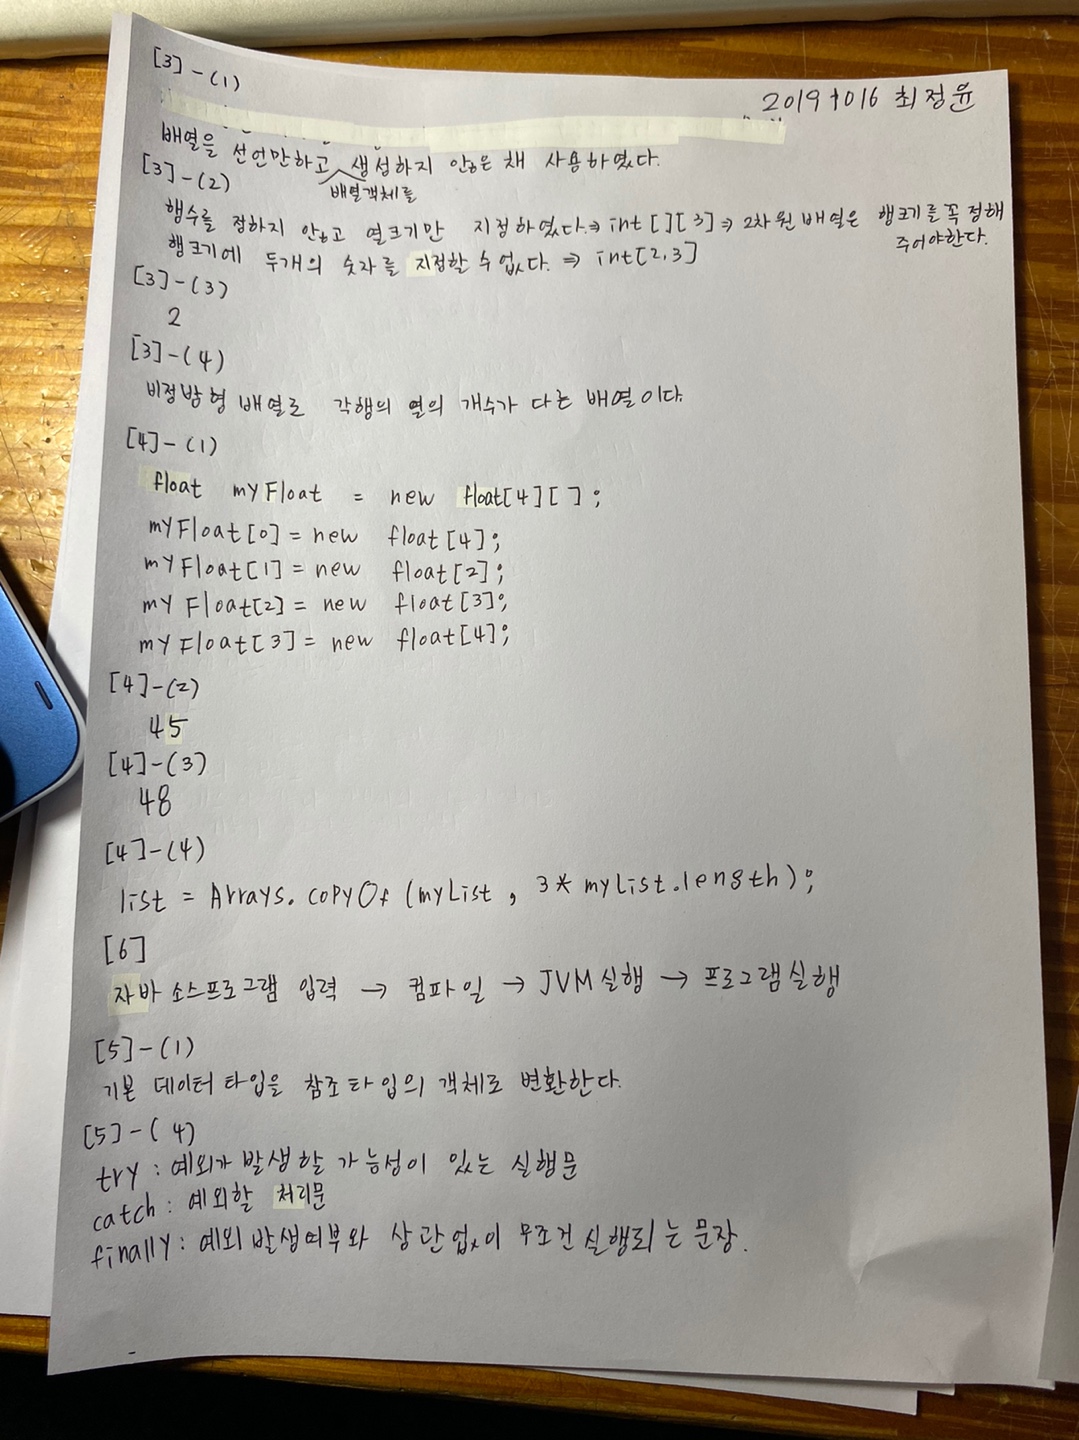 [3]-(1)
20191016 최정윤
배열을 선언만하고 생성하지 않은 채 사용하였다.
배열객체를
[3]-(2)
행수를 정하지 않고 열크기만 지정하였다.⇒ int[][3]⇒ 2차원 배열은 행크기를 꼭 정해
주어야한다.
행크기에 두개의 숫자를 지정할 수 없다. ⇒ int[2,3]
[3]-(3)
2
[3]-(4)
비정방형 배열로 각행의 열의 개수가 다른 배열이다.
[4]-(1)
float myFloat = new float[4][];
myFloat[0] = new float[4];
myFloat[1] = new float[2];
myFloat[2] = new float[3];
myFloat[3] = new float[4];
[4]-(2)
45
[4]-(3)
48
[4]-(4)
list = Arrays.copyOf(myList, 3* myList.length);
[6]
자바 소스프로그램 입력 → 컴파일 → JVM 실행 → 프로그램실행
[5]-(1)
기본 데이터 타입을 참조타입의 객체로 변환한다.
[5]-(4)
try : 예외가 발생할 가능성이 있는 실행문
catch : 예외할 처리문
finally : 예외 발생여부와 상관없이 무조건 실행되는 문장.